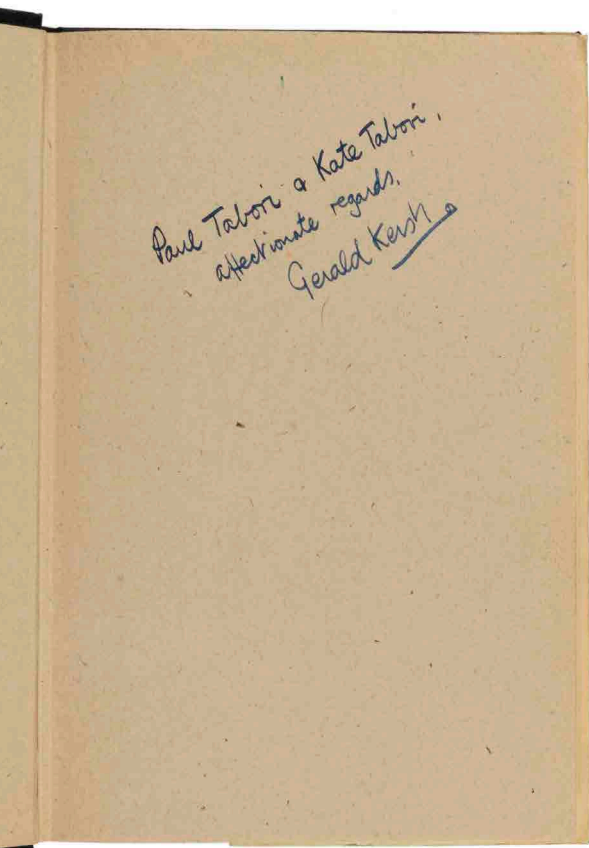 Paul Tabori & Kate Tabori,
affectionate regards,
Gerald Kersh